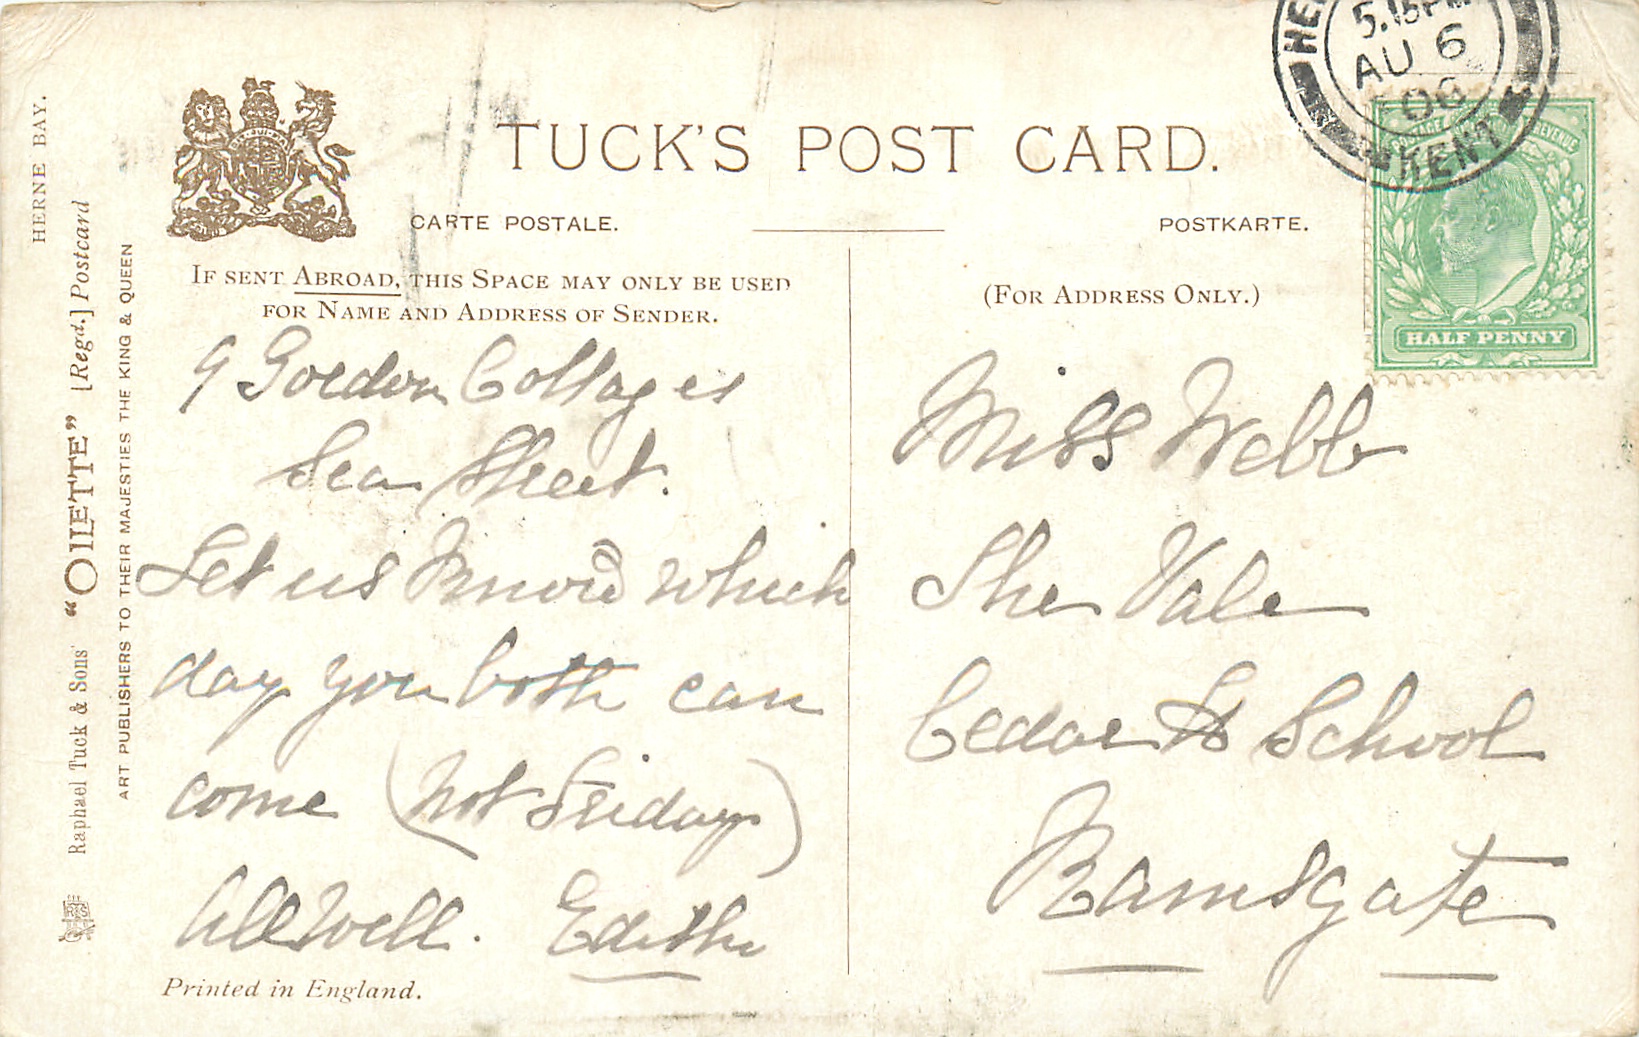 HERNE BAY.
Raphael Tuck & Sons' "OILETTE" [Regd.] Postcard
ART PUBLISHERS TO THEIR MAJESTIES THE KING & QUEEN
TUCK'S POST CARD.
CARTE POSTALE.
POSTKARTE.
IF SENT ABROAD, THIS SPACE MAY ONLY BE USED
FOR NAME AND ADDRESS OF SENDER.
9 Gordon Cottages
Sea Street.
Let us know which
day you both can
come (not Friday)
All Well. Edith
Printed in England.
(FOR ADDRESS ONLY.)
Miss Webb
The Vale
Cedar St School
Ramsgate
5.15PM
AU 6
06
KENT
REVENUE
HALF PENNY